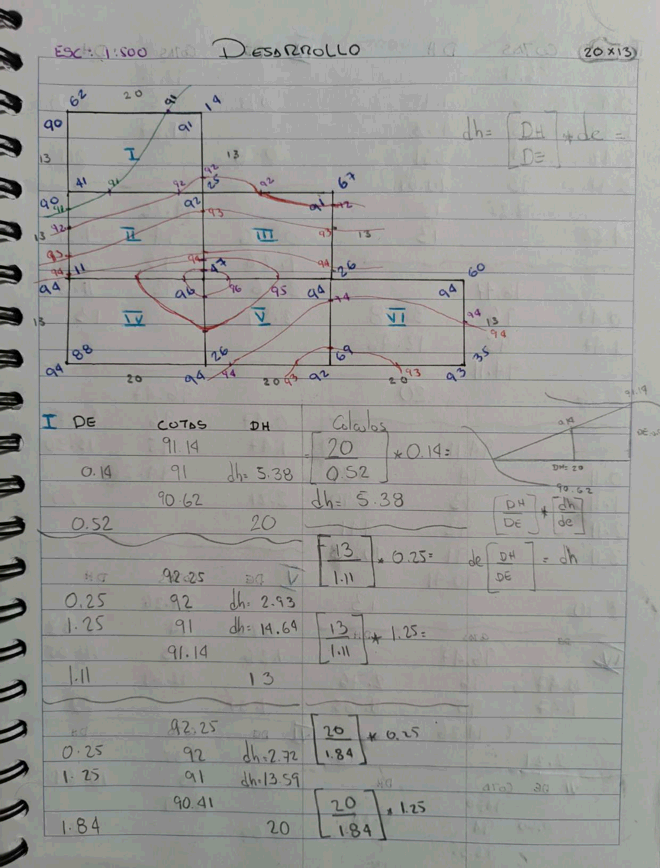 ESC: 1:500 DESARROLLO (20×13)
62 20 91 14
90 91
dh= [DH/DE] * de =
13 I 13
41 91 92 92 25 92 67
90 91 92 91 92
92 93
13 II III 93 13
93 94 94
94 11 47 26 60
94 96 96 95 94 94
13 IV V 94 VI 94 13
94
88 26 69 35
94 94 94 93 92 93 93
20 20 20
I DE COTAS DH Calculos
91.14
0.14 91 dh= 5.38 = [20/0.52] * 0.14=
90.62 dh= 5.38
0.52 20
91.14
0.14
DH= 20
90.62
[DH/DE] * [dh/de]
92.25 [13/1.11] * 0.25=
de [DH/DE] = dh
0.25 92 dh= 2.93
1.25 91 dh= 14.64 [13/1.11] * 1.25=
91.14
1.11 13
92.25 [20/1.84] * 0.25
0.25 92 dh=2.72
1.25 91 dh=13.59
90.41 [20/1.84] * 1.25
1.84 20